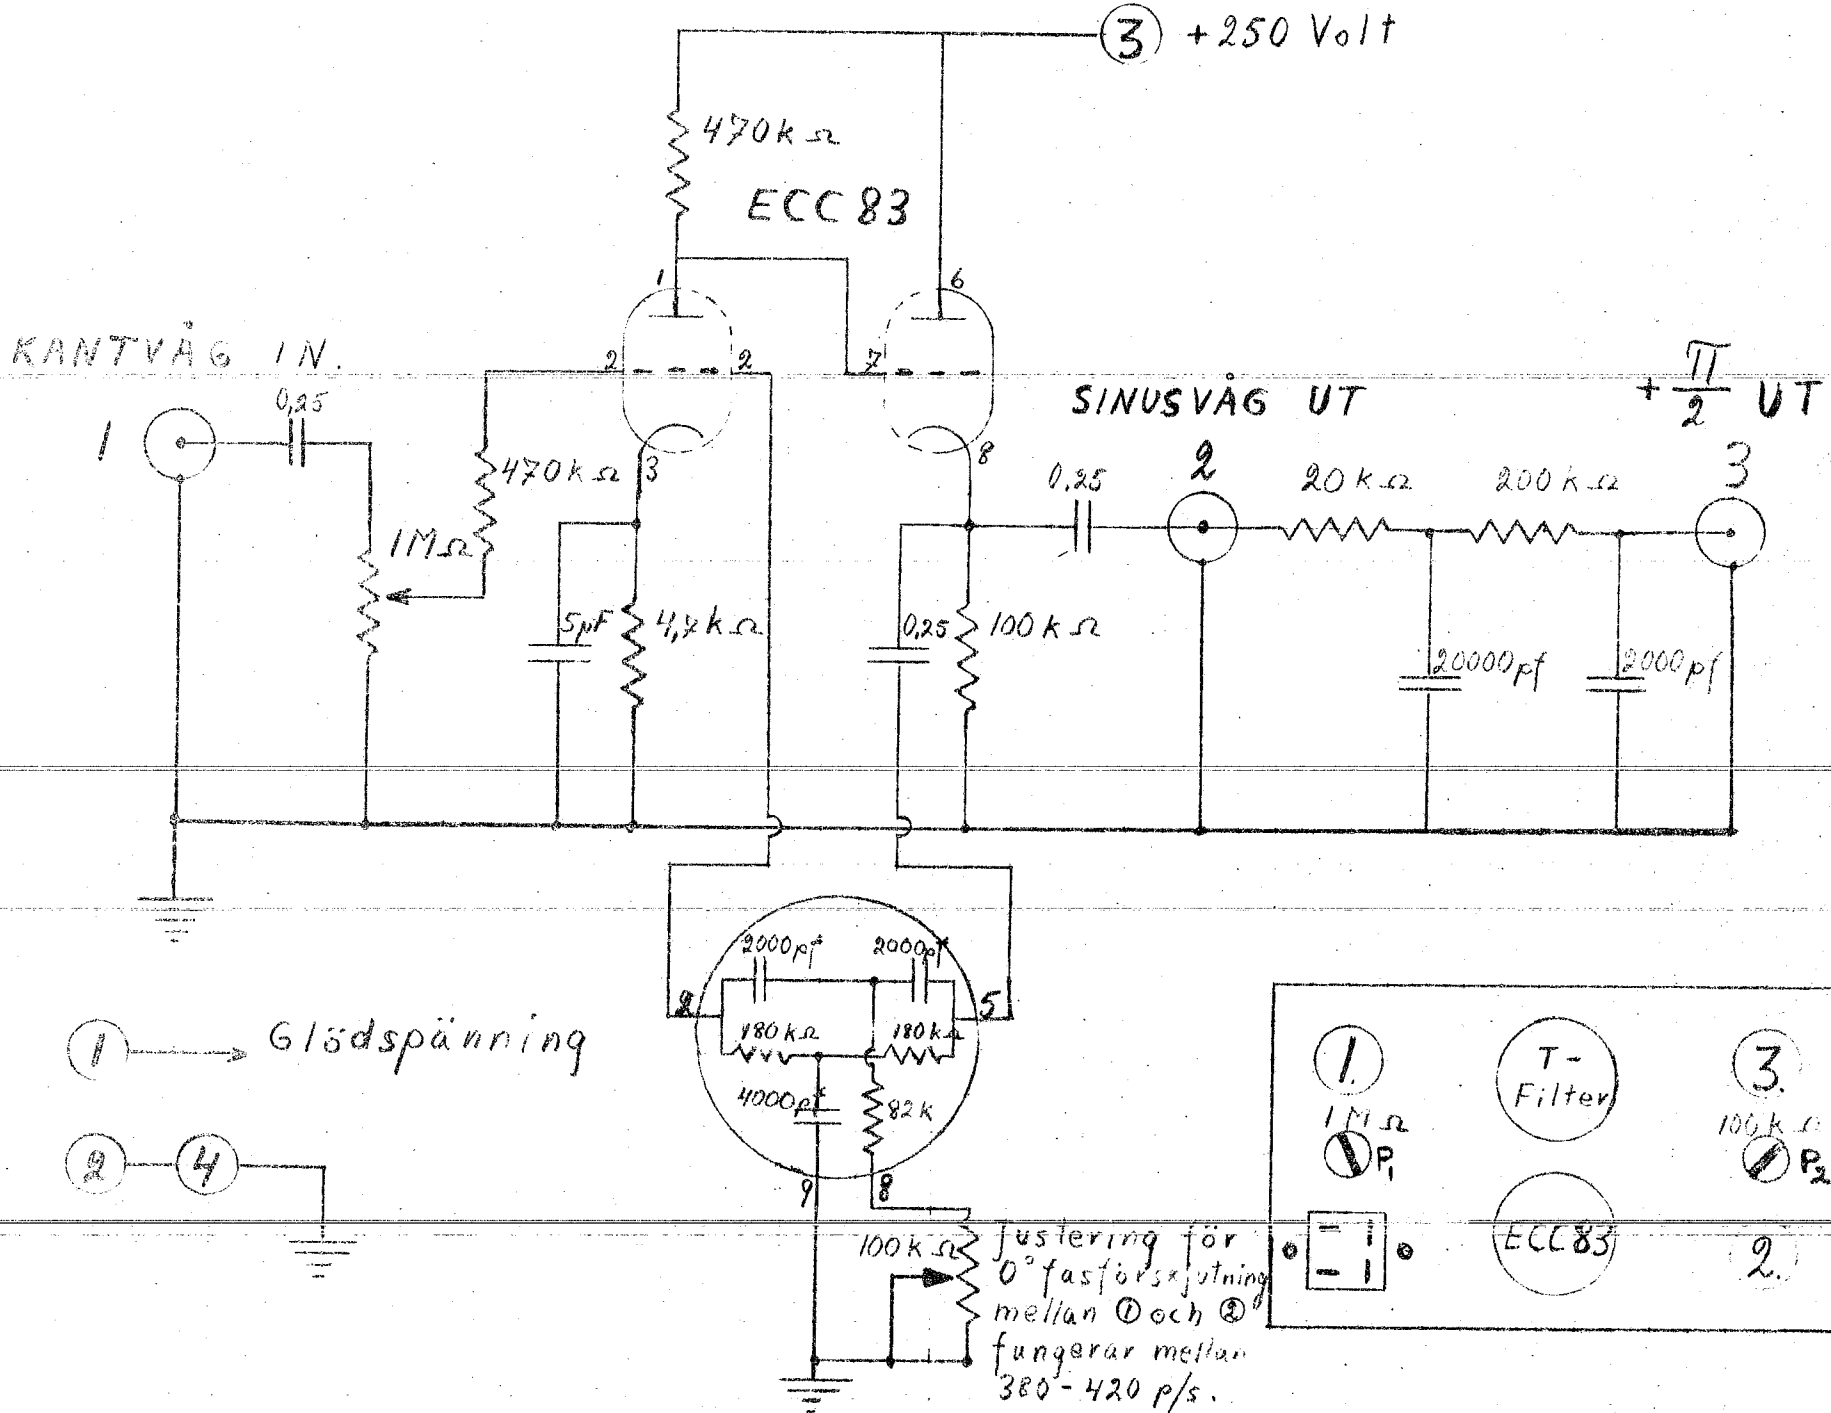 3 +250 Volt
470kΩ
ECC 83
1
6
KANTVÅG IN.
2
2
7
+ π/2 UT
0,25
SINUSVÅG UT
1
470kΩ
3
8
0,25
2
20kΩ
200kΩ
3
1MΩ
5µF
4,7kΩ
0,25
100kΩ
20000pf
2000pf
2000pf
2000pf
2
5
180kΩ
180kΩ
4000pf
82k
9
8
1 Glödspänning
2 4
100kΩ
Justering för
0° fasförskjutning
mellan ① och ②
fungerar mellan
380-420 p/s.
1.
T-
Filter
3.
1MΩ
100kΩ
P1
P2
ECC83
2.